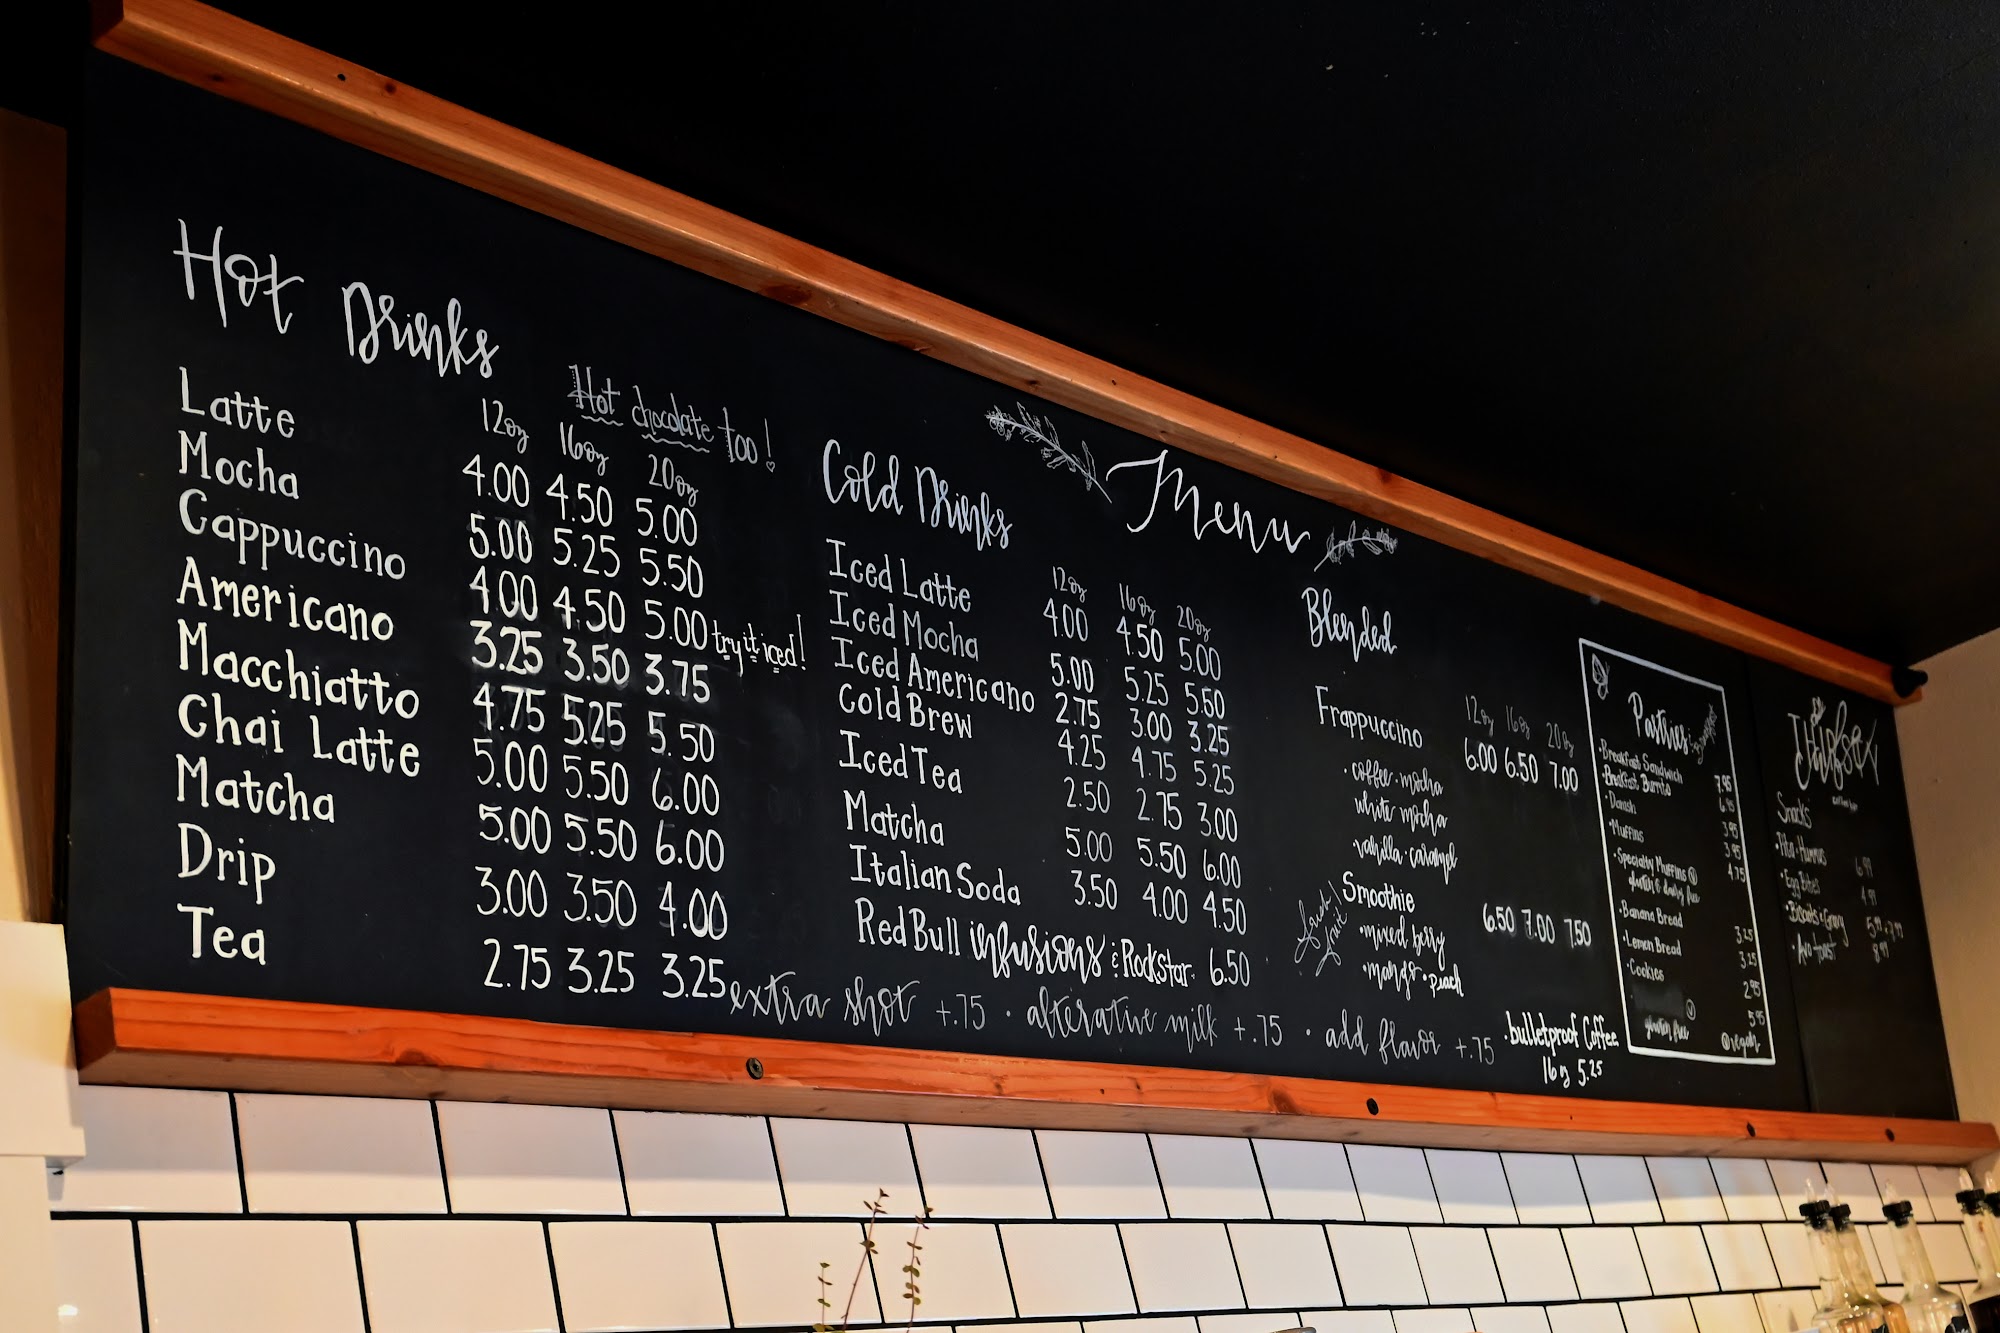 Hot Drinks
Hot chocolate too!
12oz 16oz 20oz
Latte 4.00 4.50 5.00
Mocha 5.00 5.25 5.50
Cappuccino 4.00 4.50 5.00 try it iced!
Americano 3.25 3.50 3.75
Macchiatto 4.75 5.25 5.50
Chai Latte 5.00 5.50 6.00
Matcha 5.00 5.50 6.00
Drip 3.00 3.50 4.00
Tea 2.75 3.25 3.25
Menu
Cold Drinks
12oz 16oz 20oz
Iced Latte 4.00 4.50 5.00
Iced Mocha 5.00 5.25 5.50
Iced Americano 2.75 3.00 3.25
Cold Brew 4.25 4.75 5.25
Iced Tea 2.50 2.75 3.00
Matcha 5.00 5.50 6.00
Italian Soda 3.50 4.00 4.50
Red Bull infusions & Rockstar 6.50
extra shot +.75 · alterative milk +.75 · add flavor +.75
Blended
12oz 16oz 20oz
Frappuccino 6.00 6.50 7.00
· coffee · mocha
white mocha
· vanilla · caramel
Smoothie 6.50 7.00 7.50
fruit
· mixed berry
· mango · peach
· bulletproof Coffee
16oz 5.25
Pastries
· Breakfast Sandwich 7.95
· Breakfast Burrito 6.95
· Danish 3.95
· Muffins 3.95
· Specialty Muffins 4.75
gluten & dairy free
· Banana Bread 3.25
· Lemon Bread 3.25
· Cookies 2.95
5.95
gluten free
vegan
Snacks
· Pita · Hummus 6.99
· Egg Bites 4.99
· Biscuits & Gravy
· Avo toast 8.99